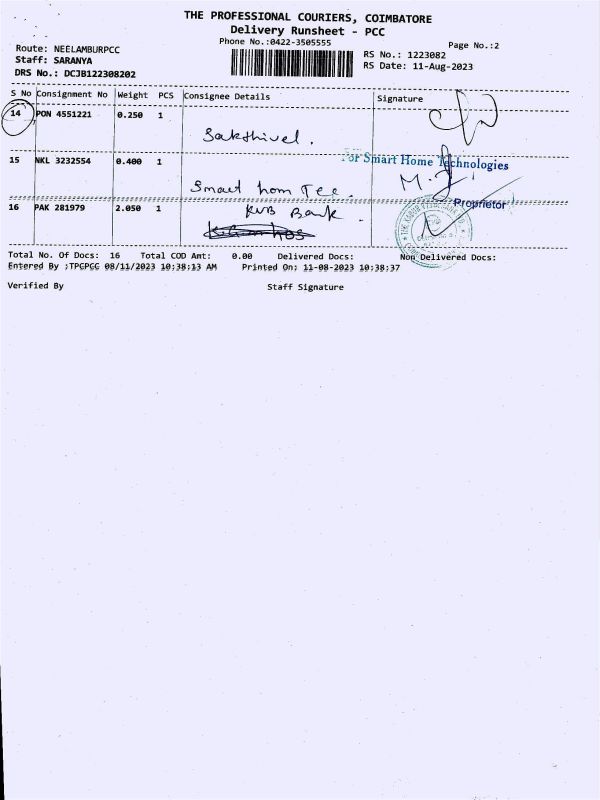 THE PROFESSIONAL COURIERS, COIMBATORE
Delivery Runsheet - PCC
Phone No.:0422-3505555
Page No.:2
Route: NEELAMBURPCC
Staff: SARANYA
DRS No.: DCJB122308202
RS No.: 1223082
RS Date: 11-Aug-2023
S No Consignment No Weight PCS Consignee Details Signature
14 PON 4551221 0.250 1
Sakthivel.
15 NKL 3232554 0.400 1
For Smart Home Technologies
Smart hom Tec.
M.
16 PAK 281979 2.050 1
KVB Bank
Proprietor
Total No. Of Docs: 16 Total COD Amt: 0.00 Delivered Docs: Non Delivered Docs:
Entered By :TPCPCC 08/11/2023 10:38:13 AM Printed On: 11-08-2023 10:38:37
Verified By Staff Signature